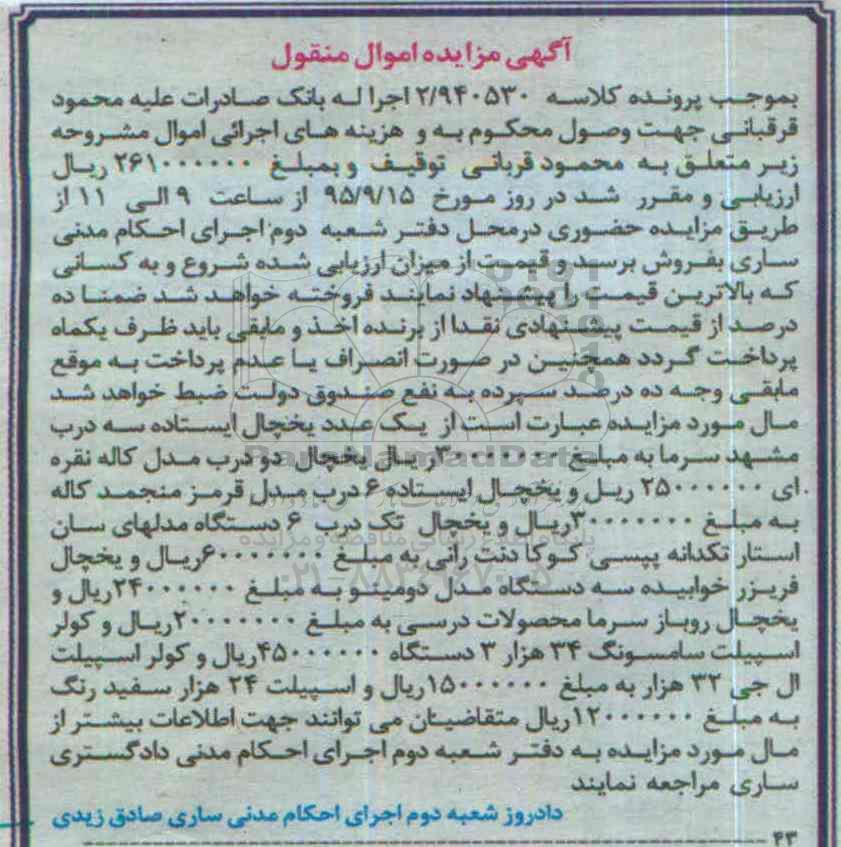 آگهی مزایده اموال منقول
بموجب پرونده کلاسه ۲/۹۴۰۵۳۰ اجرا له بانک صادرات علیه محمود
قرقبانی جهت وصول محکوم به و هزینه های اجرائی اموال مشروحه
زیر متعلق به محمود قربانی توقیف و بمبلغ ۲۶۱۰۰۰۰۰۰ ریال
ارزیابی و مقرر شد در روز مورخ ۹۵/۹/۱۵ از ساعت ۹ الی ۱۱ از
طریق مزایده حضوری درمحل دفتر شعبه دوم اجرای احکام مدنی
ساری بفروش برسد و قیمت از میزان ارزیابی شده شروع و به کسانی
که بالاترین قیمت را پیشنهاد نمایند فروخته خواهد شد ضمنا ده
درصد از قیمت پیشنهادی نقدا از برنده اخذ و مابقی باید ظرف یکماه
پرداخت گردد همچنین در صورت انصراف یا عدم پرداخت به موقع
مابقی وجه ده درصد سپرده به نفع صندوق دولت ضبط خواهد شد
مال مورد مزایده عبارت است از یک عدد یخچال ایستاده سه درب
مشهد سرما به مبلغ ۳۰۰۰۰۰۰۰ ریال یخچال دو درب مدل کاله نقره
ای ۲۵۰۰۰۰۰۰ ریل و یخچال ایستاده ۶ درب مدل قرمز منجمد کاله
به مبلغ ۳۰۰۰۰۰۰۰ ریال و یخچال تک درب ۶ دستگاه مدلهای سان
استار تکدانه پپسی کوکا دنت رانی به مبلغ ۶۰۰۰۰۰۰۰ ریال و یخچال
فریزر خوابیده سه دستگاه مدل دومینو به مبلغ ۲۴۰۰۰۰۰۰ ریال و
یخچال روباز سرما محصولات درسی به مبلغ ۲۰۰۰۰۰۰۰ ریال و کولر
اسپیلت سامسونگ ۳۴ هزار ۳ دستگاه ۴۵۰۰۰۰۰۰ ریال و کولر اسپیلت
ال جی ۳۲ هزار به مبلغ ۱۵۰۰۰۰۰۰ ریال و اسپیلت ۲۴ هزار سفید رنگ
به مبلغ ۱۲۰۰۰۰۰۰ ریال متقاضیان می توانند جهت اطلاعات بیشتر از
مال مورد مزایده به دفتر شعبه دوم اجرای احکام مدنی دادگستری
ساری مراجعه نمایند
دادروز شعبه دوم اجرای احکام مدنی ساری صادق زیدی
۴۳
ParsNamadData